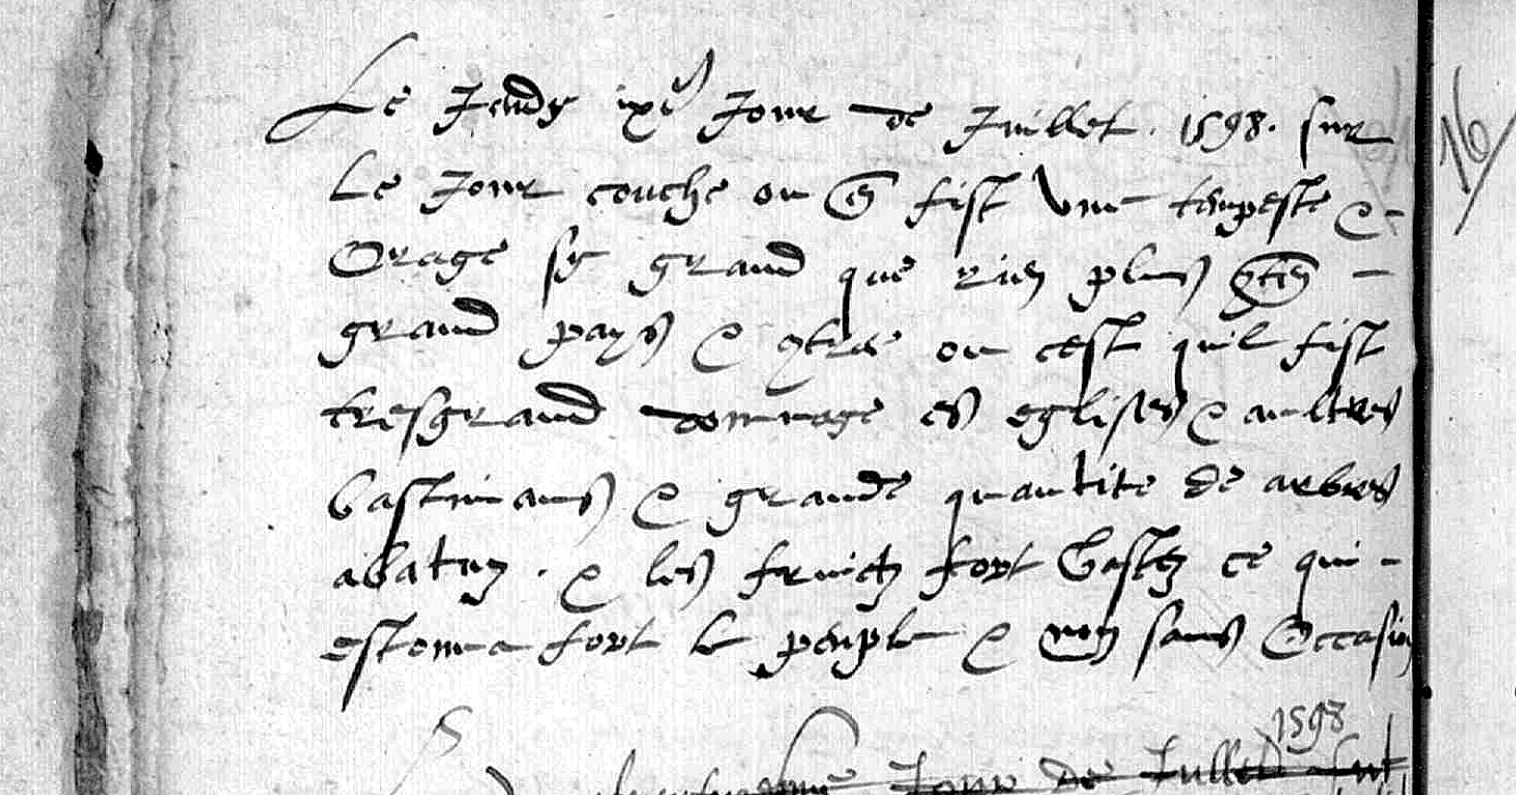 Le Jeudy ixe Jour de Juillet. 1598. sur
Le Jour couche ou fist une tempeste &
Orage sy grand que rien plus
grand pays & ou cest quil fist
tresgrand dommage es eglises & aultres
bastimans & grande quantite de arbres
abatuz. & les fruictz fort gastez ce qui
estonna fort le peuple & non sans Occasion
1598
Jour de Juillet
16